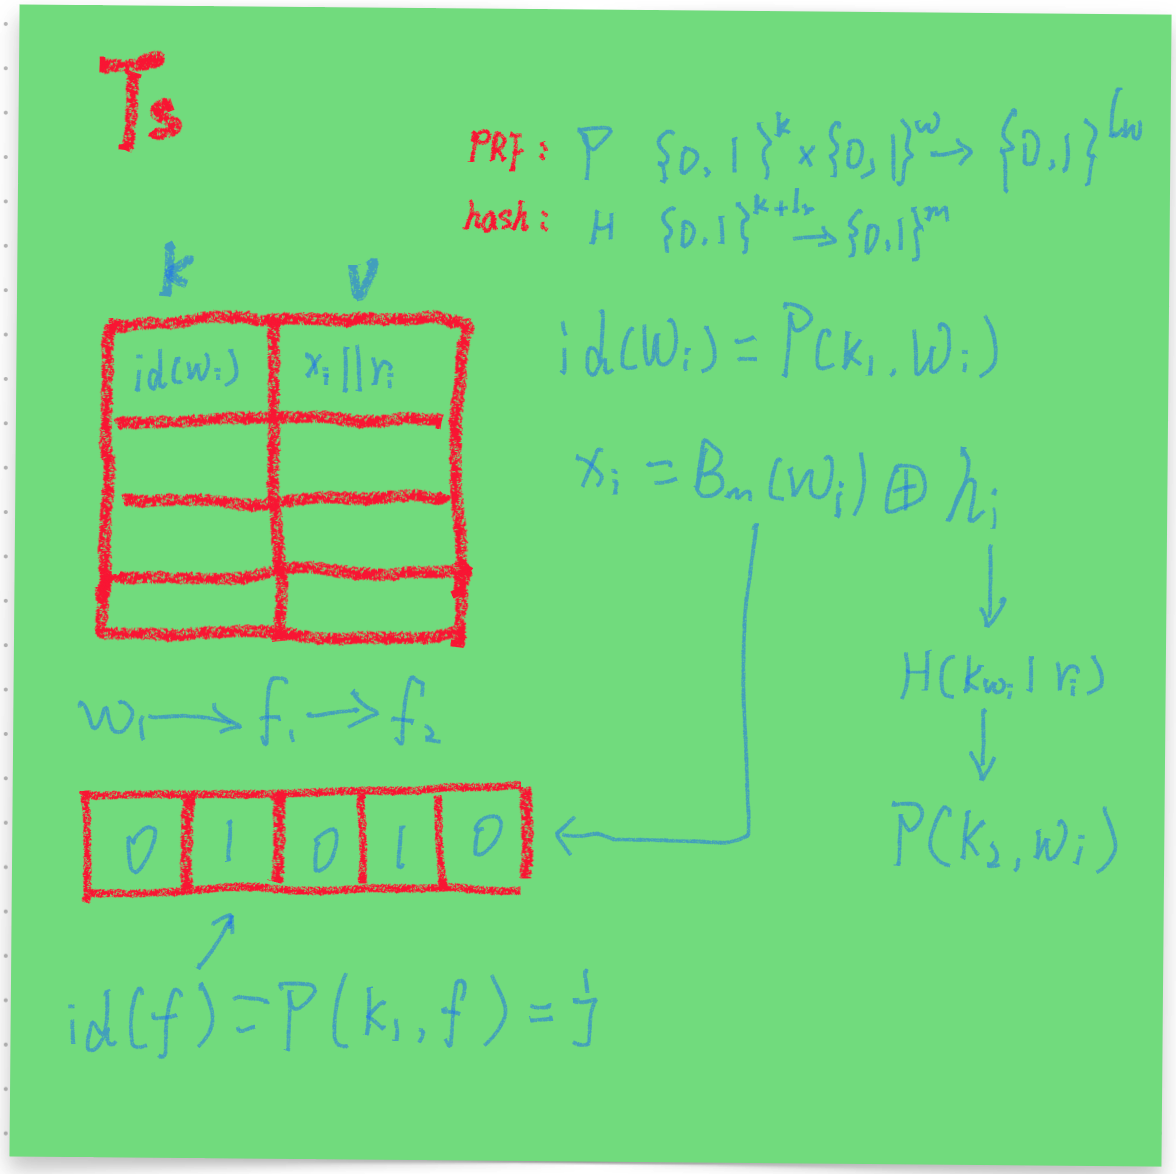 Ts
PRF: P {0,1}^k × {0,1}^w → {0,1}^Lw
hash: H {0,1}^k+lr → {0,1}^m
k v
id(wi) xi||ri
id(Wi) = P(k1, Wi)
xi = Bm(Wi) ⊕ hi
H(kwi | ri)
w1 → f1 → f2
P(k2, wi)
0 1 0 1 0
id(f) = P(k1, f) = j